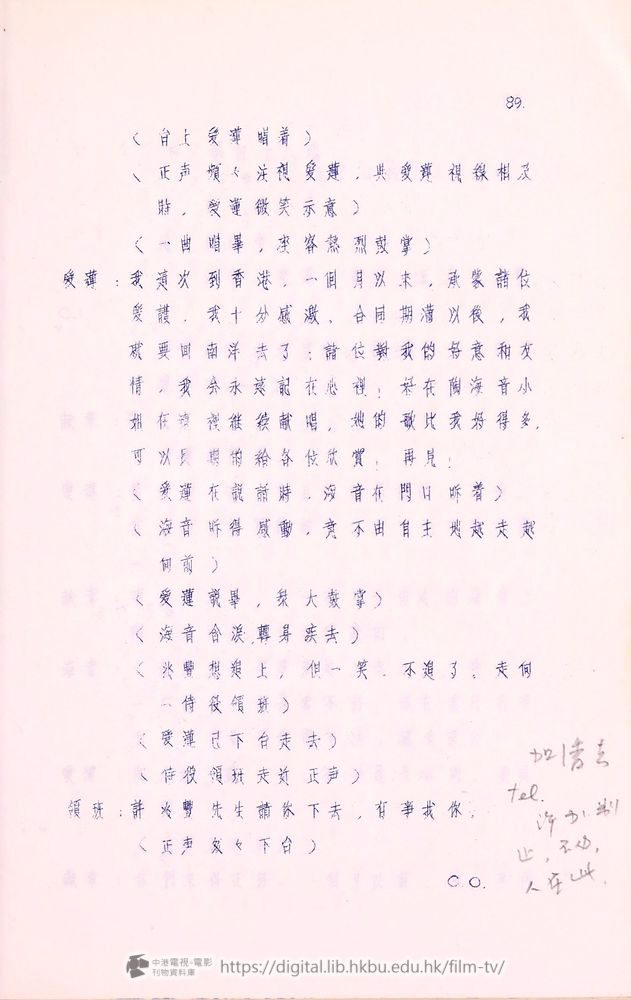 89.
（台上愛蓮唱着）
（正声頻々注視愛蓮，與愛蓮視線相及
時，愛蓮微笑示意）
（一曲唱畢，座客熱烈鼓掌）
愛蓮：我這次到香港，一個月以來，承蒙諸位
愛護，我十分感激，合同期滿以後，我
就要回南洋去了；諸位對我的好意和友
情，我会永遠記在心裡；好在陶海音小
姐在這裡繼續献唱，她的歌比我好得多，
可以長期的給各位欣賞；再見！
（愛蓮在說話時，海音在門口听着）
（海音听得感動，竟不由自主地越走越
向前）
（愛蓮說畢，衆大鼓掌）
（海音含淚轉身疾去）
（兆豐想追上，但一笑，不追了，走向
一侍役領班）
（愛蓮已下台走去）
（侍役領班走近正声）
領班：許兆豐先生請你下去，有事找你。
（正声匆々下台）
C.O.
tel.
人在此.
中港電視・電影
刊物資料庫
https://digital.lib.hkbu.edu.hk/film-tv/